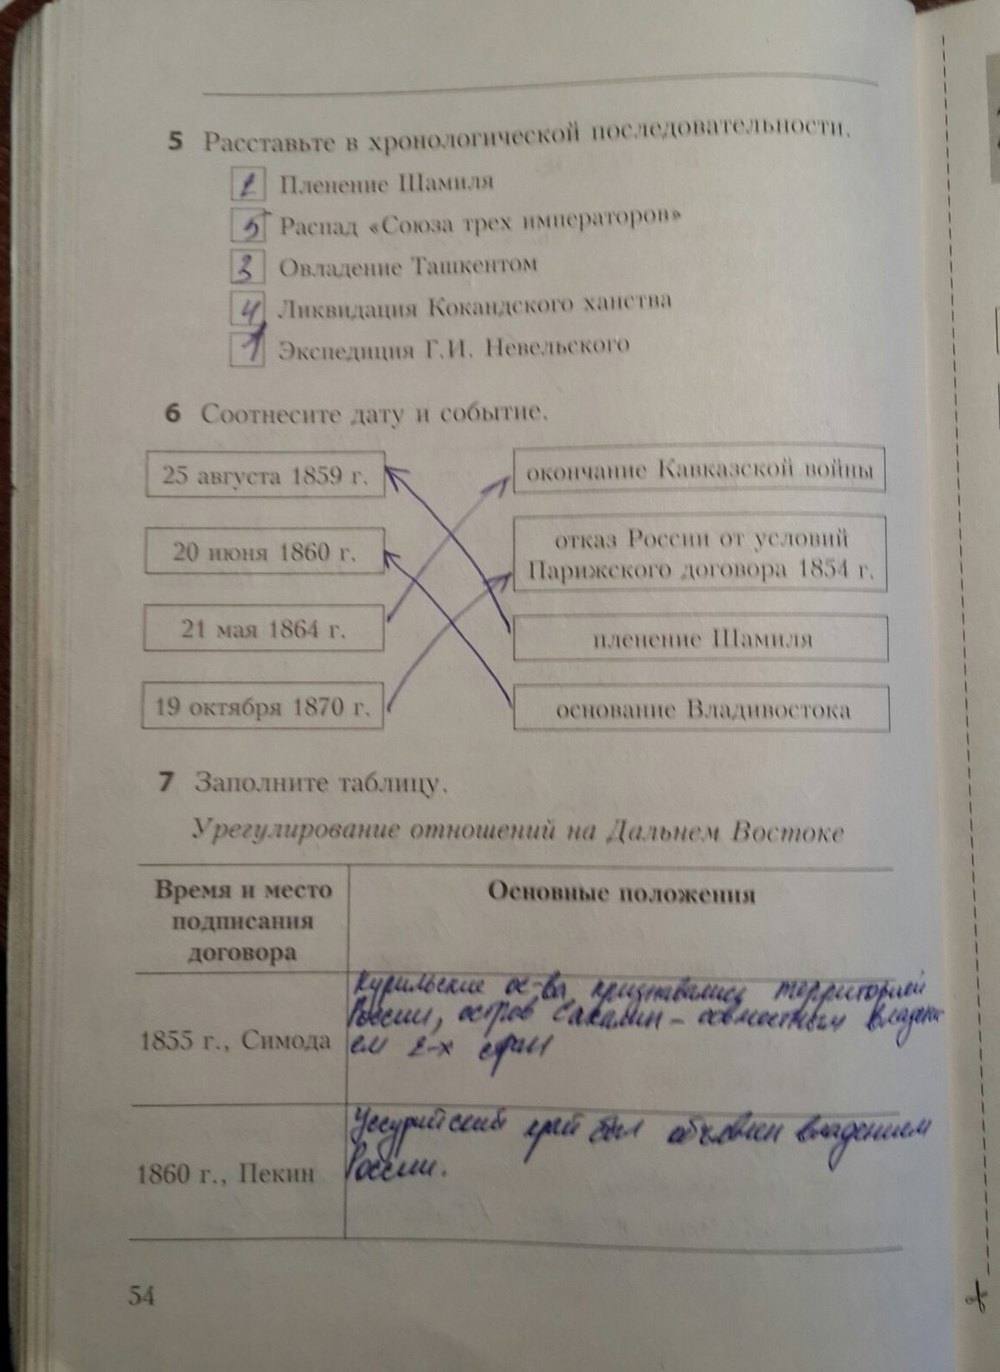 5 Расставьте в хронологической последовательности.
2 Пленение Шамиля
5 Распад «Союза трех императоров»
3 Овладение Ташкентом
4 Ликвидация Кокандского ханства
1 Экспедиция Г.И. Невельского
6 Соотнесите дату и событие.
25 августа 1859 г.
окончание Кавказской войны
20 июня 1860 г.
отказ России от условий
Парижского договора 1854 г.
21 мая 1864 г.
пленение Шамиля
19 октября 1870 г.
основание Владивостока
7 Заполните таблицу.
Урегулирование отношений на Дальнем Востоке
Время и место
подписания
договора
Основные положения
1855 г., Симода
Курильские ос-ва признавались территорией
России, остров Сахалин – совместным владени
ем 2-х стран
1860 г., Пекин
Уссурийский край был объявлен владением
России.
54